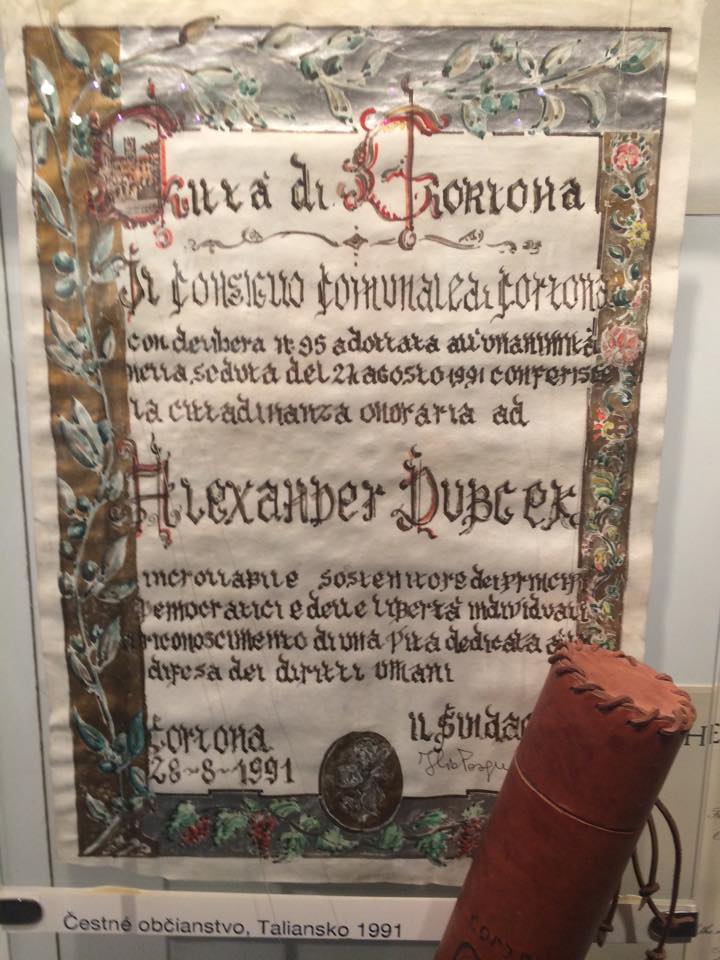 Città di Cortona
Il Consiglio Comunale di Cortona
con delibera n. 95 adottata all'unanimità
nella seduta del 21 agosto 1991 conferisce
la cittadinanza onoraria ad
Alexander Dubcek
incrollabile sostenitore dei princi
democratici e delle libertà individuali
riconoscimento di una vita dedicata
difesa dei diritti umani
Cortona il Sindac
28-8-1991
HE
Čestné občianstvo, Taliansko 1991